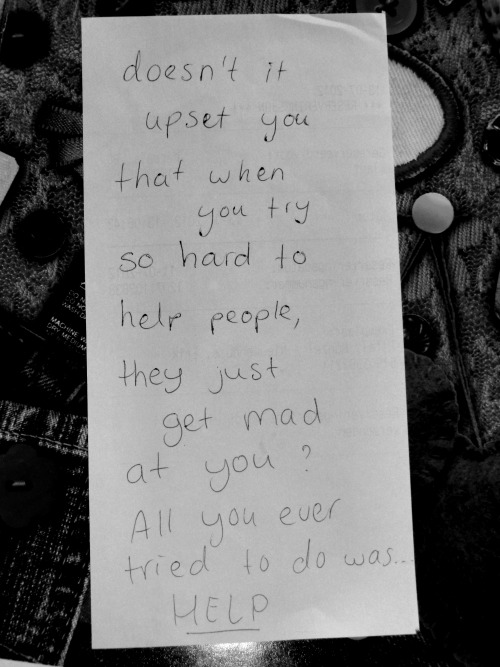 doesn't it
upset you
that when
you try
so hard to
help people,
they just
get mad
at you?
All you ever
tried to do was...
HELP